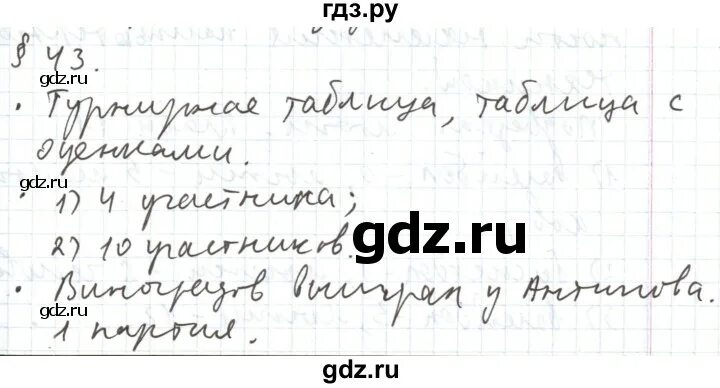 гдз.ру
§ 43.
• Турнирная таблица, таблица с
оценками.
gdz.ru
gdz.ru
• 1) 4 участника;
2) 10 участников.
gdz.ru
gdz.ru
gdz.ru
• Виноградов выиграл у Антипова.
1 партия.
gdz.ru
gdz.ru